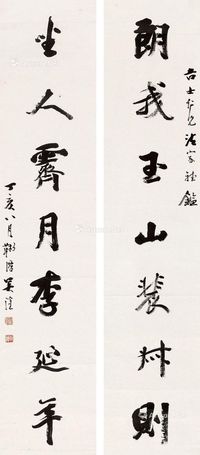 吉士仁兄法家雅鑑
朗我玉山裴叔則
坐人霽月李延年
丁亥八月鞠潭吳淦